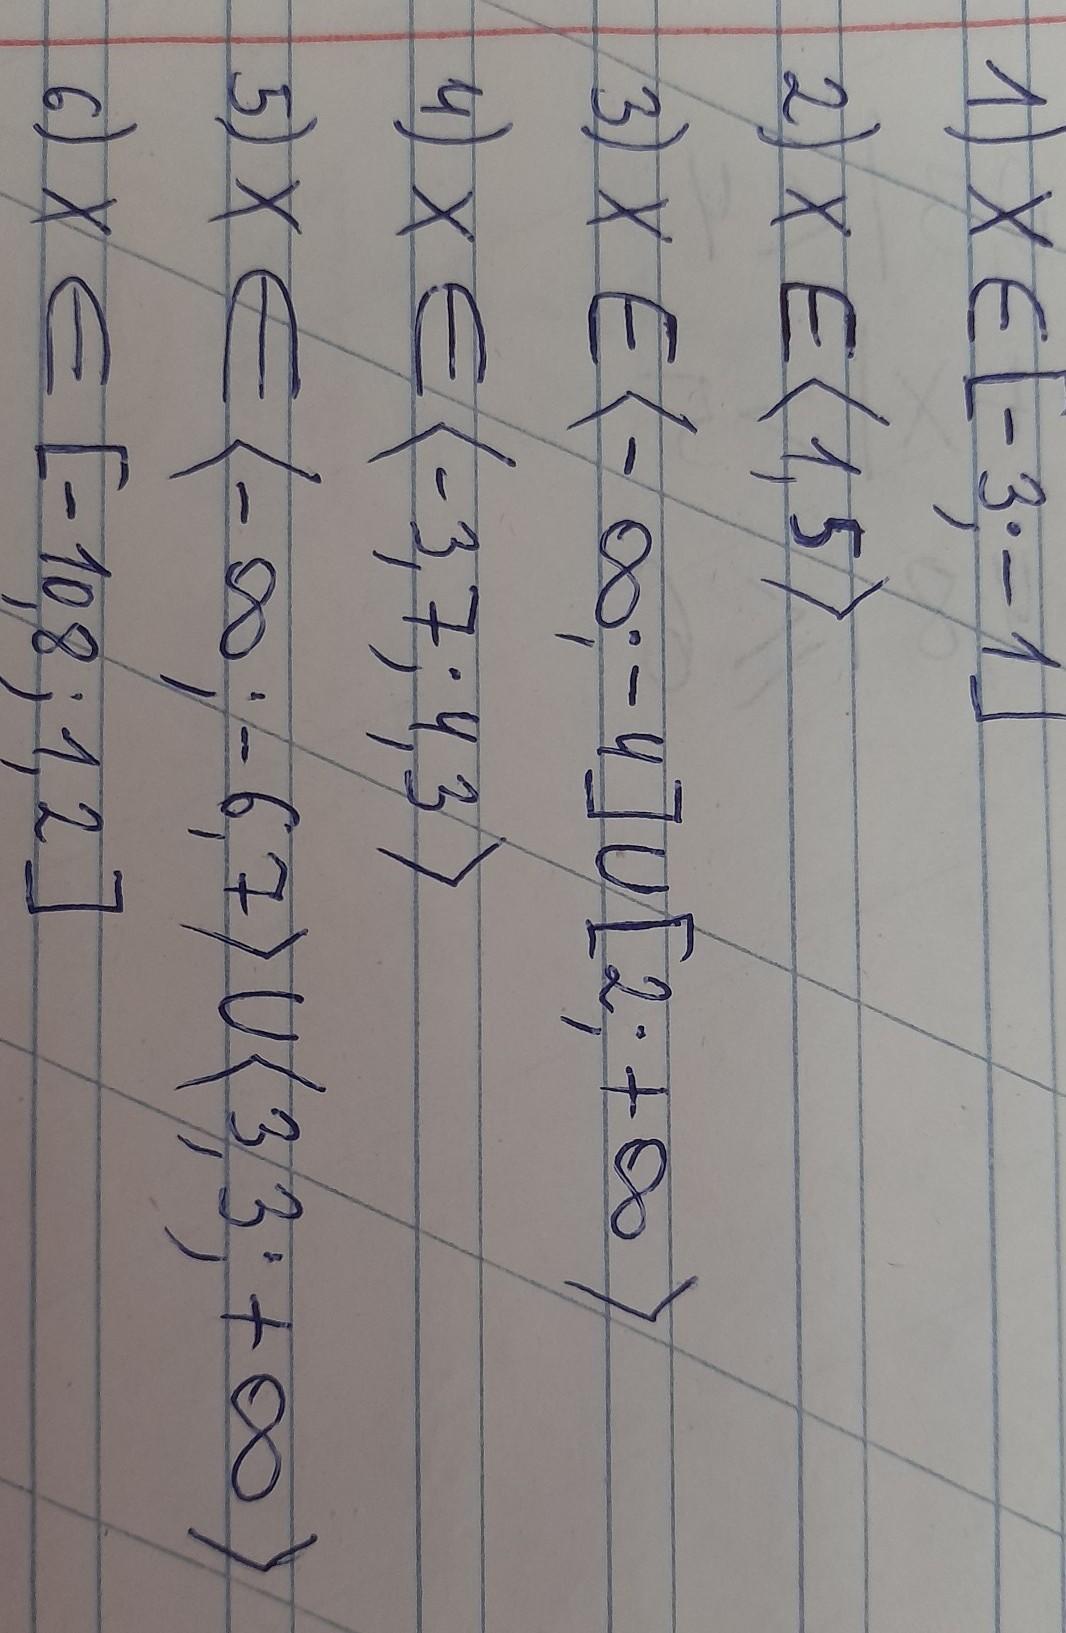 1) X ∈ [-3; -1]
2) X ∈ ⟨1, 5⟩
3) X ∈ ⟨-∞; -4] U [2; +∞⟩
4) X ∈ ⟨-3,7; 4,3⟩
5) X ∈ ⟨-∞; -6,7⟩ U ⟨3,3; +∞⟩
6) X ∈ [-10,8; 1,2]